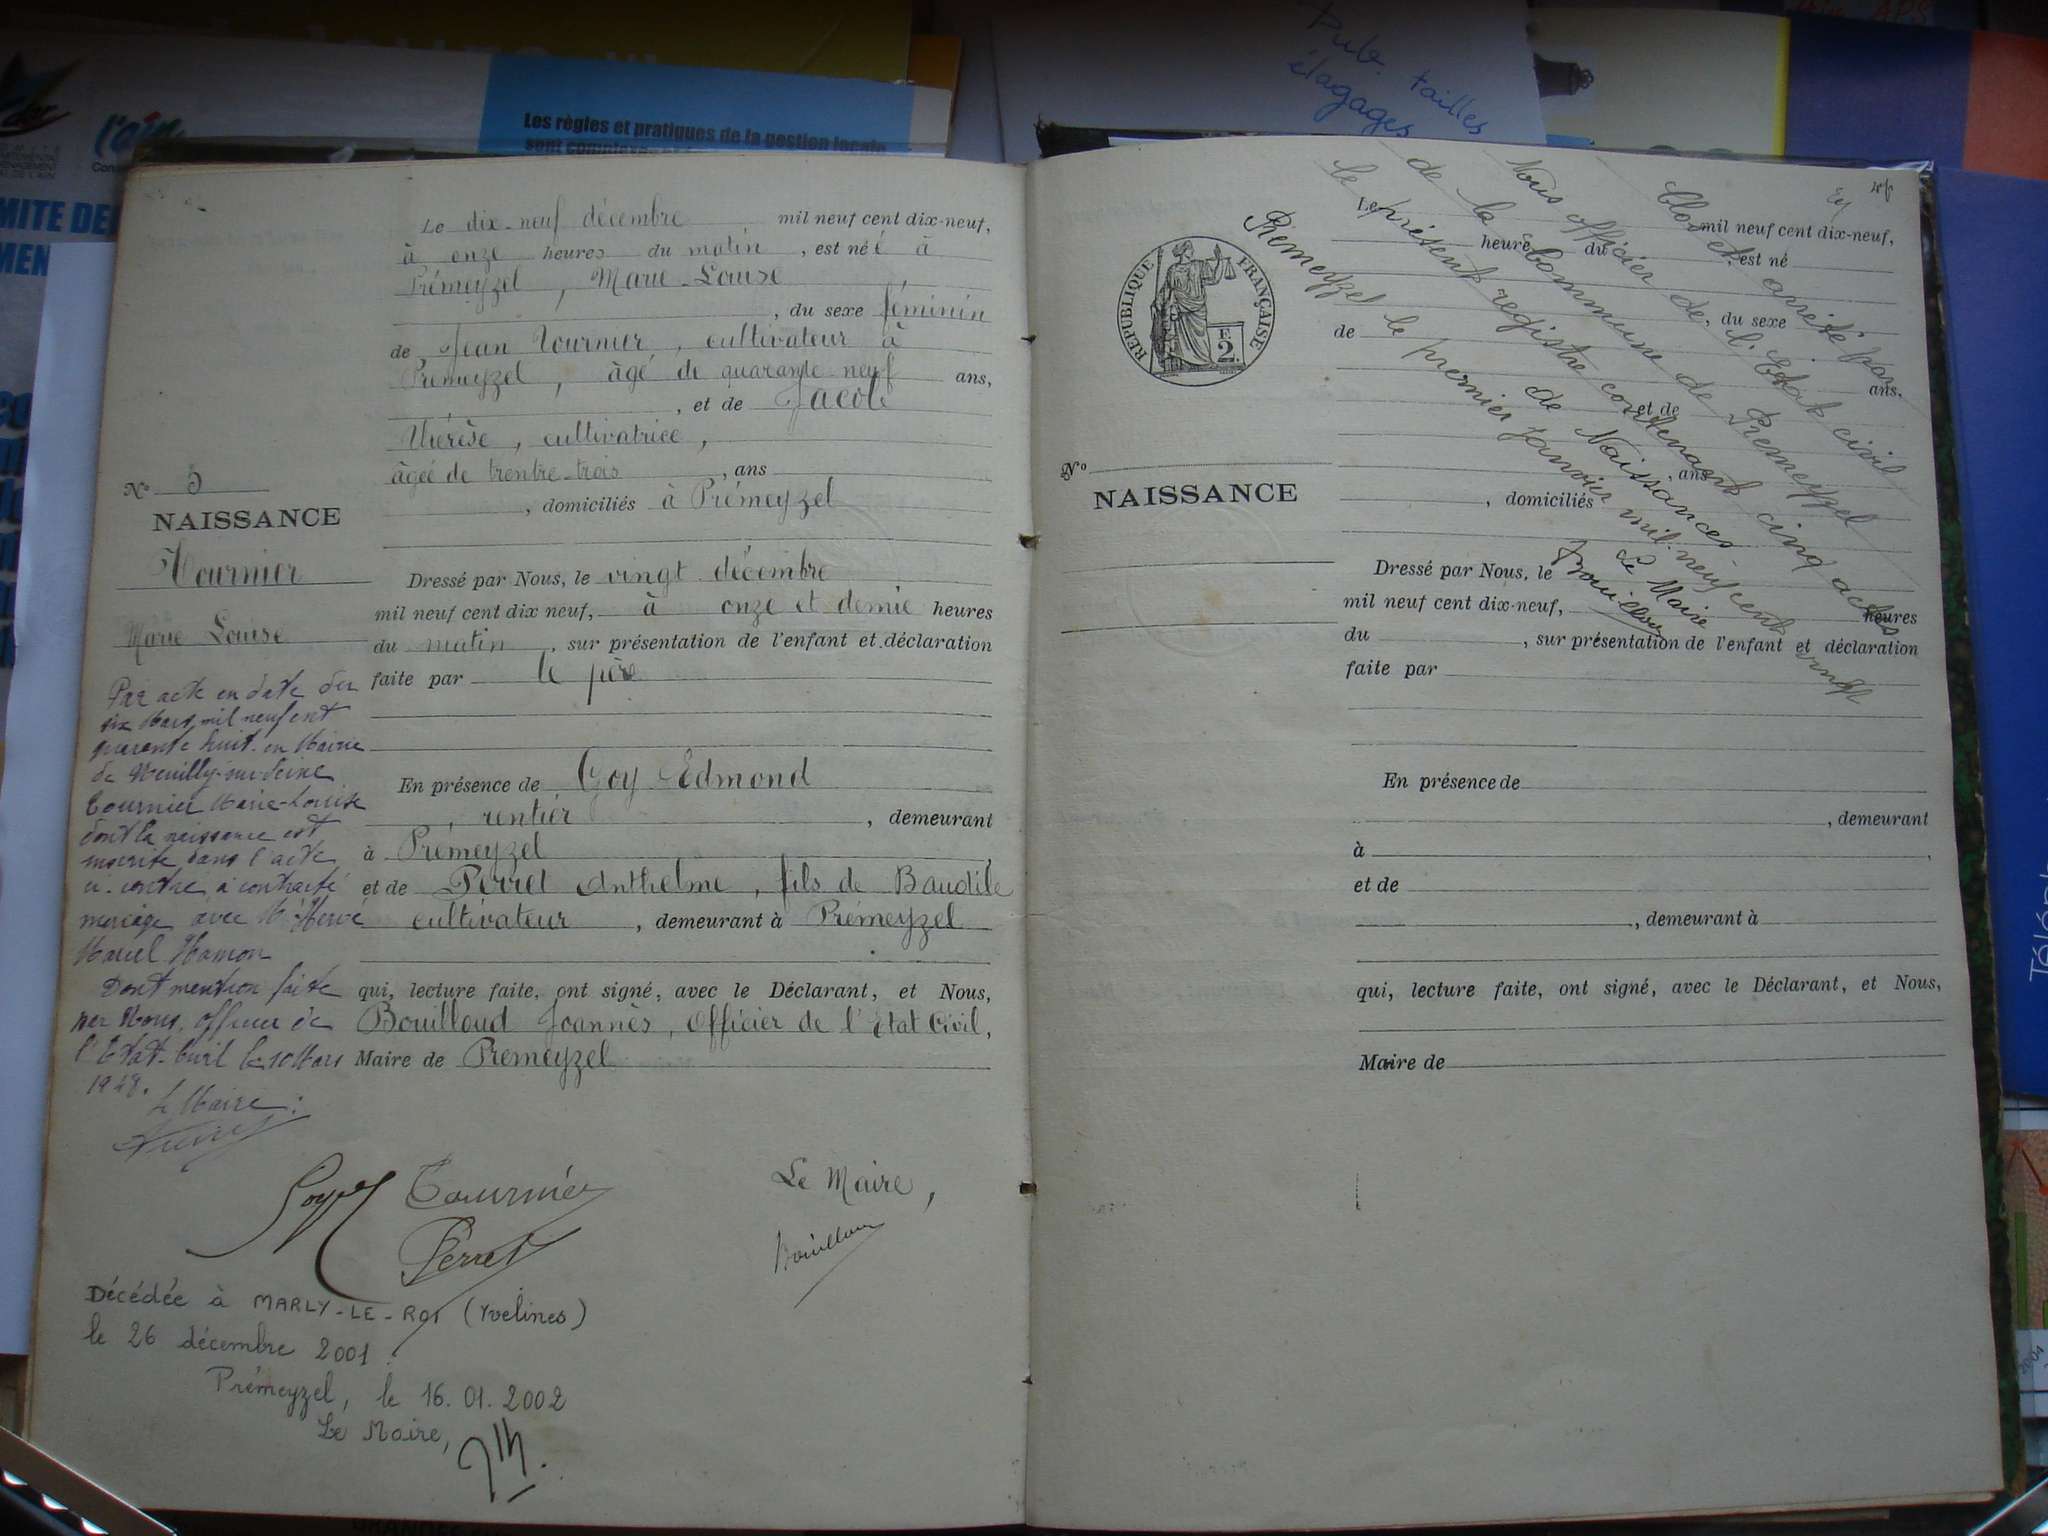 Pub. tailles
élagages
l'ain
Les règles et pratiques de la gestion locale
Le dix-neuf décembre mil neuf cent dix-neuf,
à onze heures du matin, est né é à
Prémeyzel, Marie-Louise
, du sexe féminin
de Jean Tournier, cultivateur à
Prémeyzel, âgé de quarante-neuf ans,
, et de Jacob
Thérèse, cultivatrice,
âgée de trentre-trois, ans
, domiciliés à Prémeyzel
No 5
NAISSANCE
Tournier
Marie Louise
Dressé par Nous, le vingt décembre
mil neuf cent dix neuf, à onze et demie heures
du matin, sur présentation de l'enfant et déclaration
faite par le père
En présence de Goy Edmond
, rentier, demeurant
à Prémeyzel
et de Perret Anthelme, fils de Baudile
cultivateur, demeurant à Prémeyzel
qui, lecture faite, ont signé, avec le Déclarant, et Nous,
Bouilloud Joannès, Officier de l'état Civil,
Maire de Premeyzel
Par acte en date du
six Mars mil neuf cent
quarante huit en Mairie
de Neuilly-sur-Seine
Tournier Marie-Louise
dont la naissance est
inscrite dans l'acte
ci-contre a contracté
mariage avec Mr Hervé
Marcel Hamon
Dont mention faite
par Nous, Officier de
l'Etat-Civil le 10 Mars
1948.
Le Maire:
Goy Tournier
Perret
Le Maire,
Bouilloud
Décédée à MARLY-LE-ROI (Yvelines)
le 26 décembre 2001.
Prémeyzel, le 16.01.2002
Le Maire,
Clos et arrêté par
Nous officier de l'Etat civil
de la Commune de Premeyzel
le présent registre contenant cinq actes
de Naissances
Premeyzel le premier Janvier mil neuf cent vingt
Le Maire
Bouilloud
REPUBLIQUE FRANÇAISE
E
2.
Le mil neuf cent dix-neuf,
heure du, est né
, du sexe
de
ans,
et de
, ans
, domiciliés
No
NAISSANCE
Dressé par Nous, le
mil neuf cent dix-neuf, heures
du, sur présentation de l'enfant et déclaration
faite par
En présence de
, demeurant
à
et de
, demeurant à
qui, lecture faite, ont signé, avec le Déclarant, et Nous,
Maire de